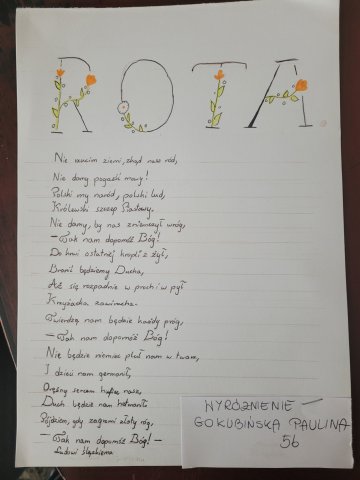 ROTA
Nie rzucim ziemi, skąd nasz ród,
Nie damy pogześć mowy!
Polski my naród, polski lud,
Królewski szczep Piastowy.
Nie damy, by nas zniemczył wróg,
– Tak nam dopomóż Bóg!
Do krwi ostatniej kropli z żył,
Bronić będziemy Ducha,
Aż się rozpadnie w proch i w pył
Krzyżacka zawierucha.
Twierdzą nam będzie każdy próg,
– Tak nam dopomóż Bóg!
Nie będzie niemiec pluł nam w twarz,
I dzieci nam germanił,
Orężny hufiec nasz,
Duch będzie nam hetmanił.
Pójdziem, gdy zagrzmi złoty róg,
– Tak nam dopomóż Bóg! –
Ludowi śląskiemu
WYRÓŻNIENIE –
GOKUBIŃSKA PAULINA
5b